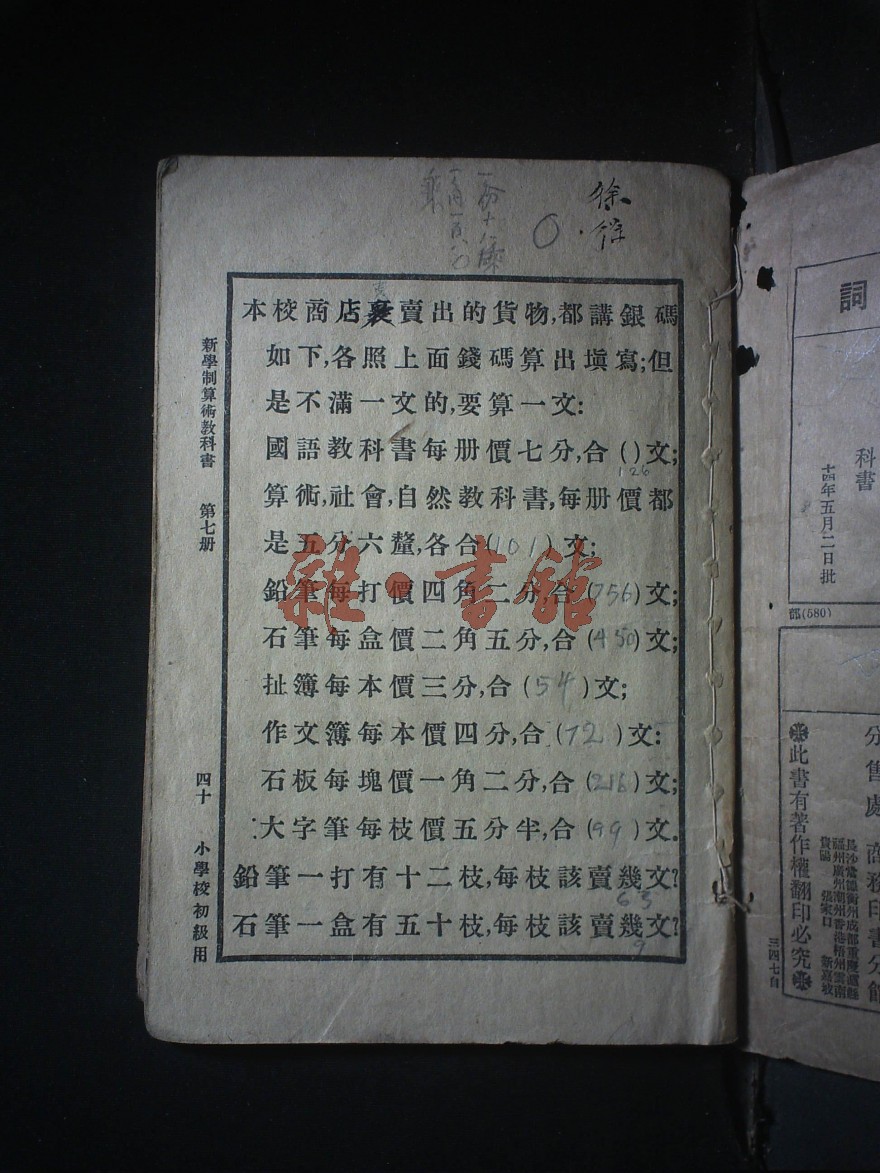 徐
〇
本校商店裏賣出的貨物,都講銀碼
如下,各照上面錢碼算出填寫;但
是不滿一文的,要算一文:
國語教科書每册價七分,合()文;
126
算術,社會,自然教科書,每册價都
是五分六釐,各合(101)文;
鉛筆每打價四角二分,合(756)文;
石筆每盒價二角五分,合(450)文;
扯簿每本價三分,合(54)文;
作文簿每本價四分,合(72)文:
石板每塊價一角二分,合(216)文;
大字筆每枝價五分半,合(99)文.
鉛筆一打有十二枝,每枝該賣幾文?
63
石筆一盒有五十枝,每枝該賣幾文?
9
新學制算術教科書 第七册
四十 小學校初級用
雜·書館
詞
科書
十四年五月二日批
部(580)
分售處 商務印書分館
長沙常德衡州成都重慶瀘縣
福州廣州潮州香港梧州雲南
貴陽 張家口 新嘉坡
此書有著作權翻印必究
三四七自